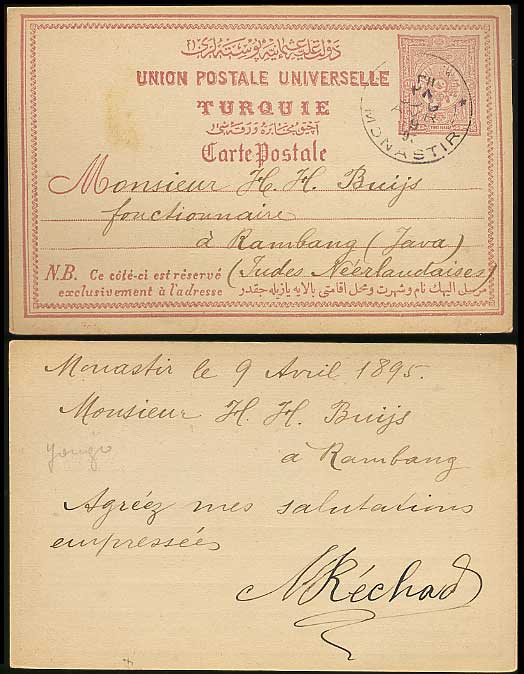 دولت علیه عثمانیه پوسته لری
UNION POSTALE UNIVERSELLE
TURQUIE
آچیق مخابره ورقه سی
Carte Postale
MONASTIR
Monsieur H. H. Buijs
fonctionnaire
à Rambang (Java)
(Indes Néerlandaises)
N.B. Ce côté-ci est réservé
exclusivement à l'adresse
مرسل الیهك نام و شهرت و محل اقامتی بالایه یازیله جقدر
Monastir le 9 Avril 1895.
Monsieur H. H. Buijs
à Rambang
Agréez mes salutations
empressées
NRéchad